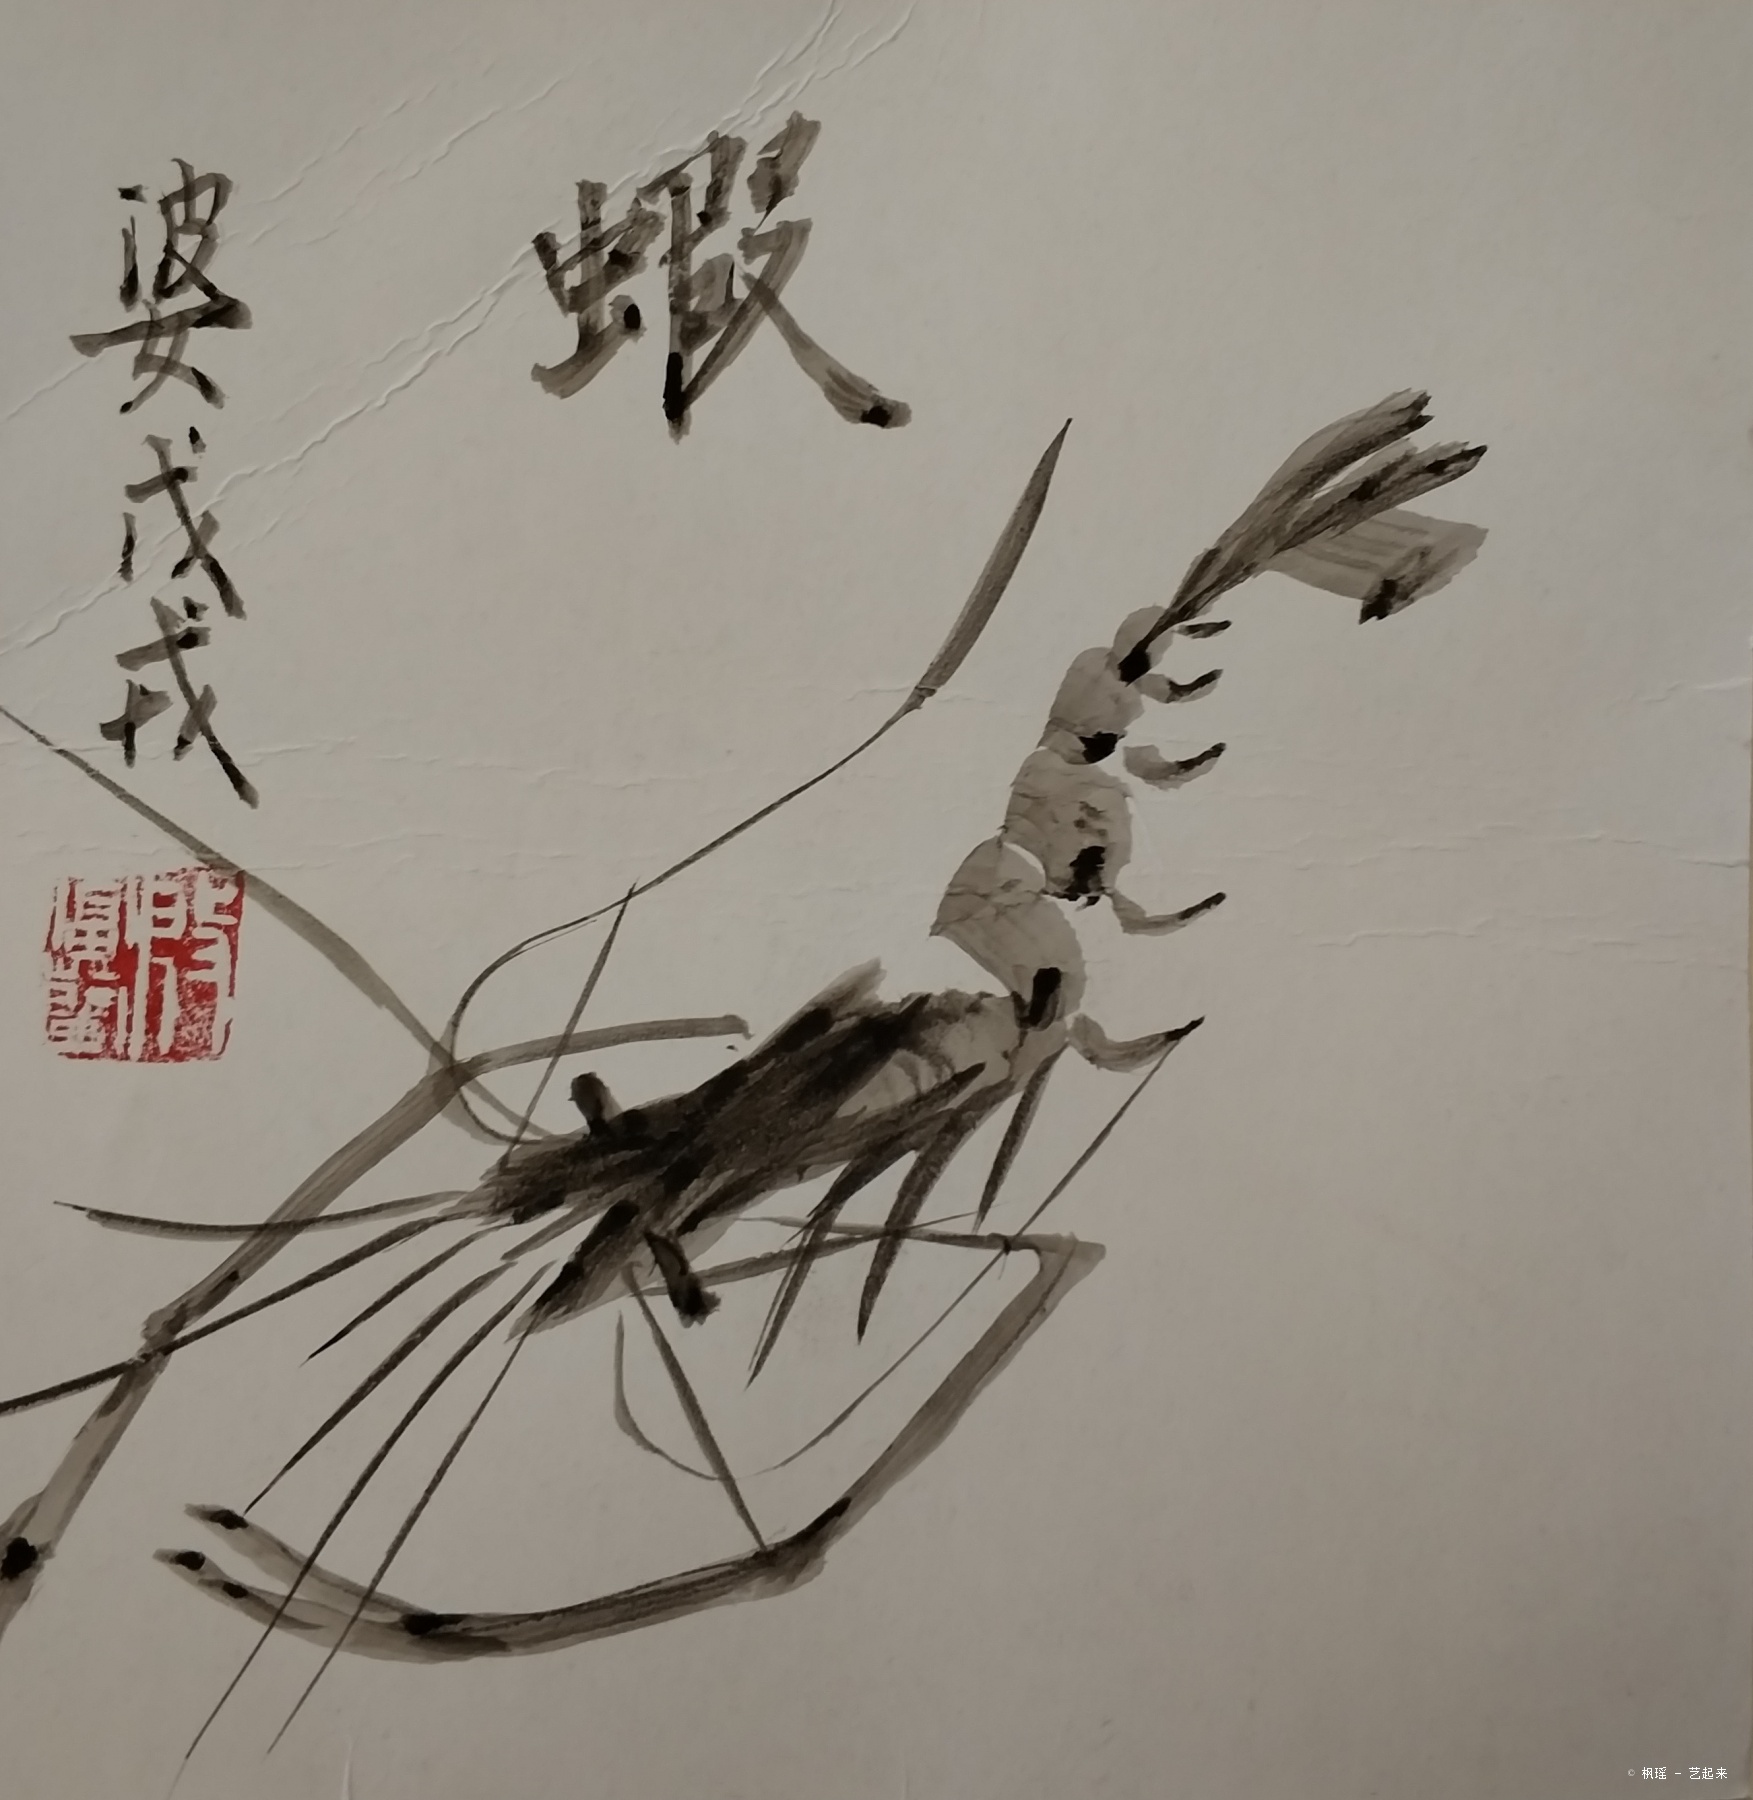 蝦
婆戊戌
© 枫瑶 - 艺起来